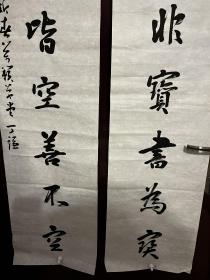 非寶書為寶
皆空善不空